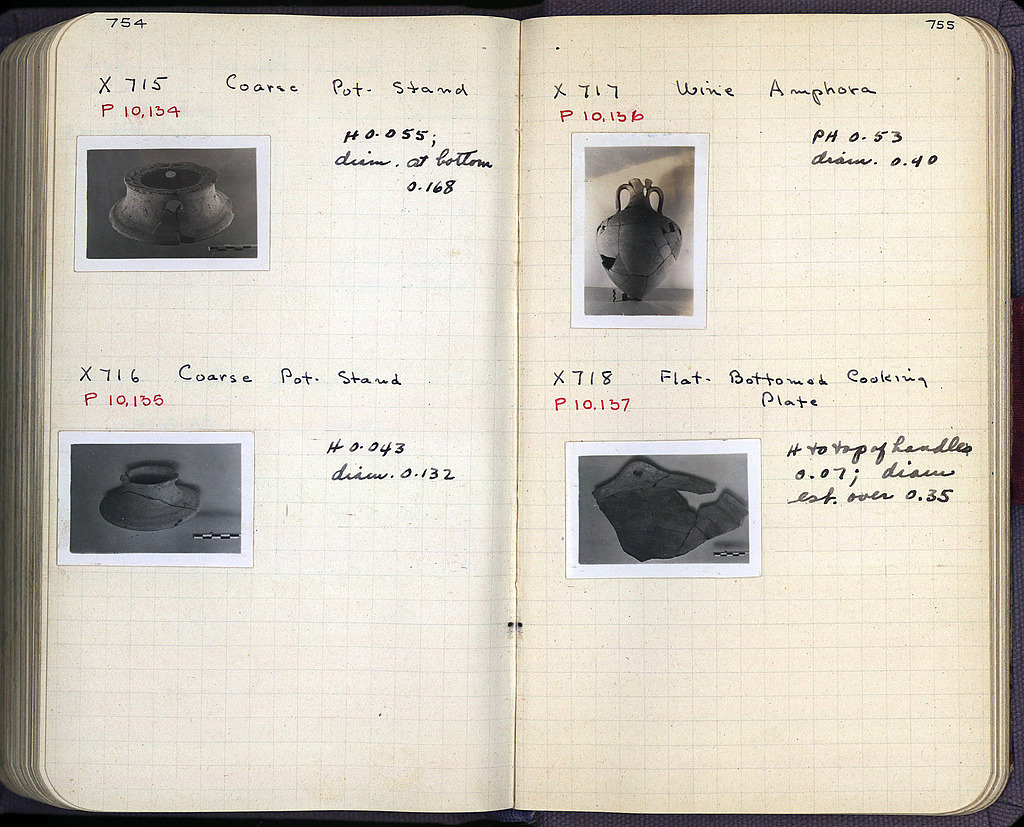 754
X 715 Coarse Pot- Stand
P 10,134
H 0.055;
diam. at bottom
0.168
X 716 Coarse Pot- Stand
P 10,135
H 0.043
diam. 0.132
755
X 717 Wine Amphora
P 10,136
PH 0.53
diam. 0.40
X 718 Flat-Bottomed Cooking
Plate
P 10,137
H to top of handles
0.07; diam
est. over 0.35